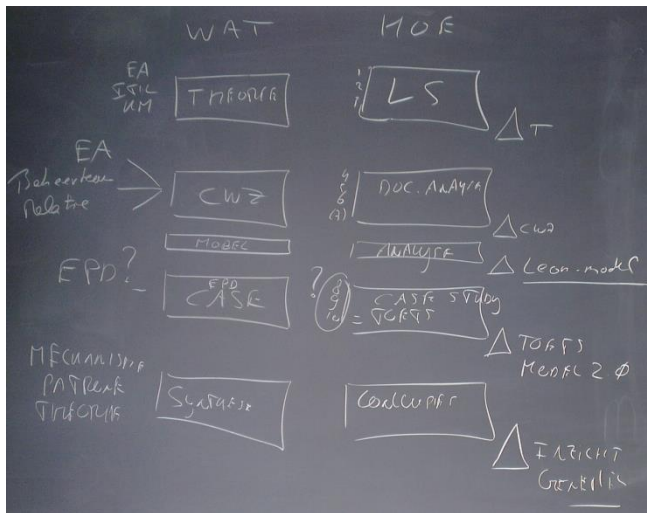 WAT HOE
EA
ITIL
KM
THEORIE
1
2
3
LS
△ T
EA
Beheerteam
Relatie
CWZ
4
5
6
(7)
DOC. ANALYSE
△ CWZ
MODEL
ANALYSE
△ Leon-model
EPD?
EPD
CASE
?
8
9
10
CASE STUDY
= TOETS
△ TOETS
MODEL 2 Ø
MECHANISME
PATRONEN
THEORIE
SYNTHESE
CONCLUSIES
△ INZICHT
GENERIEK